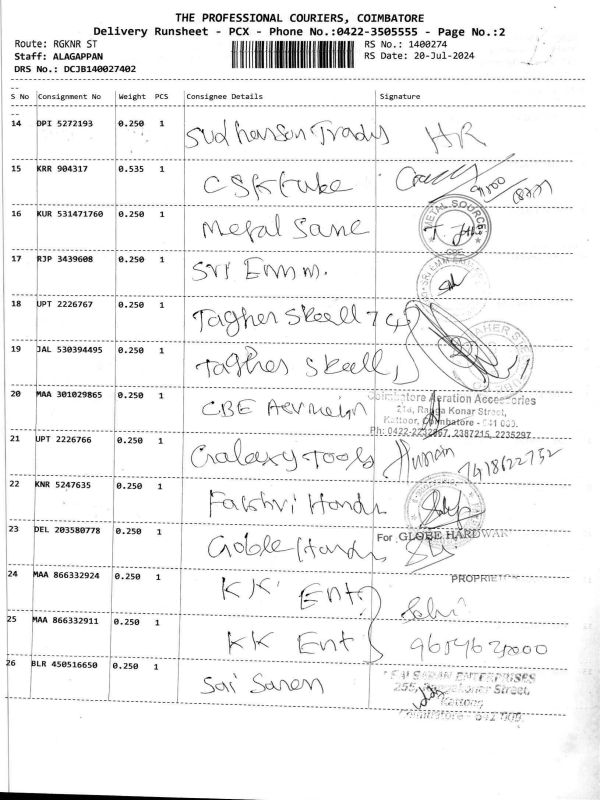 THE PROFESSIONAL COURIERS, COIMBATORE
Delivery Runsheet - PCX - Phone No.:0422-3505555 - Page No.:2
Route: RGKNR ST
RS No.: 1400274
Staff: ALAGAPPAN
RS Date: 20-Jul-2024
DRS No.: DCJB140027402
S No Consignment No Weight PCS Consignee Details Signature
14 DPI 5272193 0.250 1 HR
15 KRR 904317 0.535 1 CSK tube
16 KUR 531471760 0.250 1 Metal Sane
METAL SOURCE
17 RJP 3439608 0.250 1 Sri Emm.
18 UPT 2226767 0.250 1 Tagher Skeell 74
19 JAL 530394495 0.250 1 Tagher Skeell
20 MAA 301029865 0.250 1 CBE
Coimbatore Aeration Accessories
21a, Ranga Konar Street,
Kattoor, Coimbatore - 641 009.
Ph: 0422-2232867, 2387215, 2235297
21 UPT 2226766 0.250 1 Galaxy Tools
22 KNR 5247635 0.250 1 Fakhri Hardw
23 DEL 203580778 0.250 1 Goble Hardw
For GLOBE HARDWAR
PROPRIET
24 MAA 866332924 0.250 1 KK Ent
25 MAA 866332911 0.250 1 KK Ent
26 BLR 450516650 0.250 1 Sai Saren
SAI SARAN ENTERPRISES
Konar Street,
Kattoor,
Coimbatore